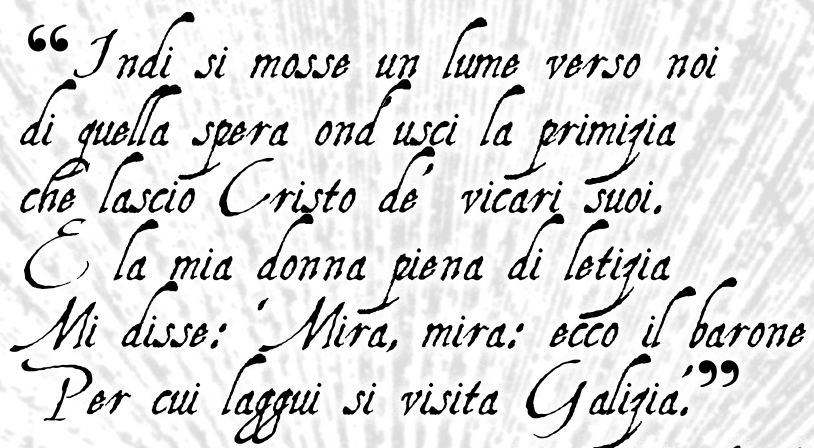 “Indi si mosse un lume verso noi
di quella spera ond'usci la primizia
che lascio Cristo de' vicari suoi.
E la mia donna piena di letizia
Mi disse: 'Mira, mira: ecco il barone
Per cui laggui si visita Galizia.'”